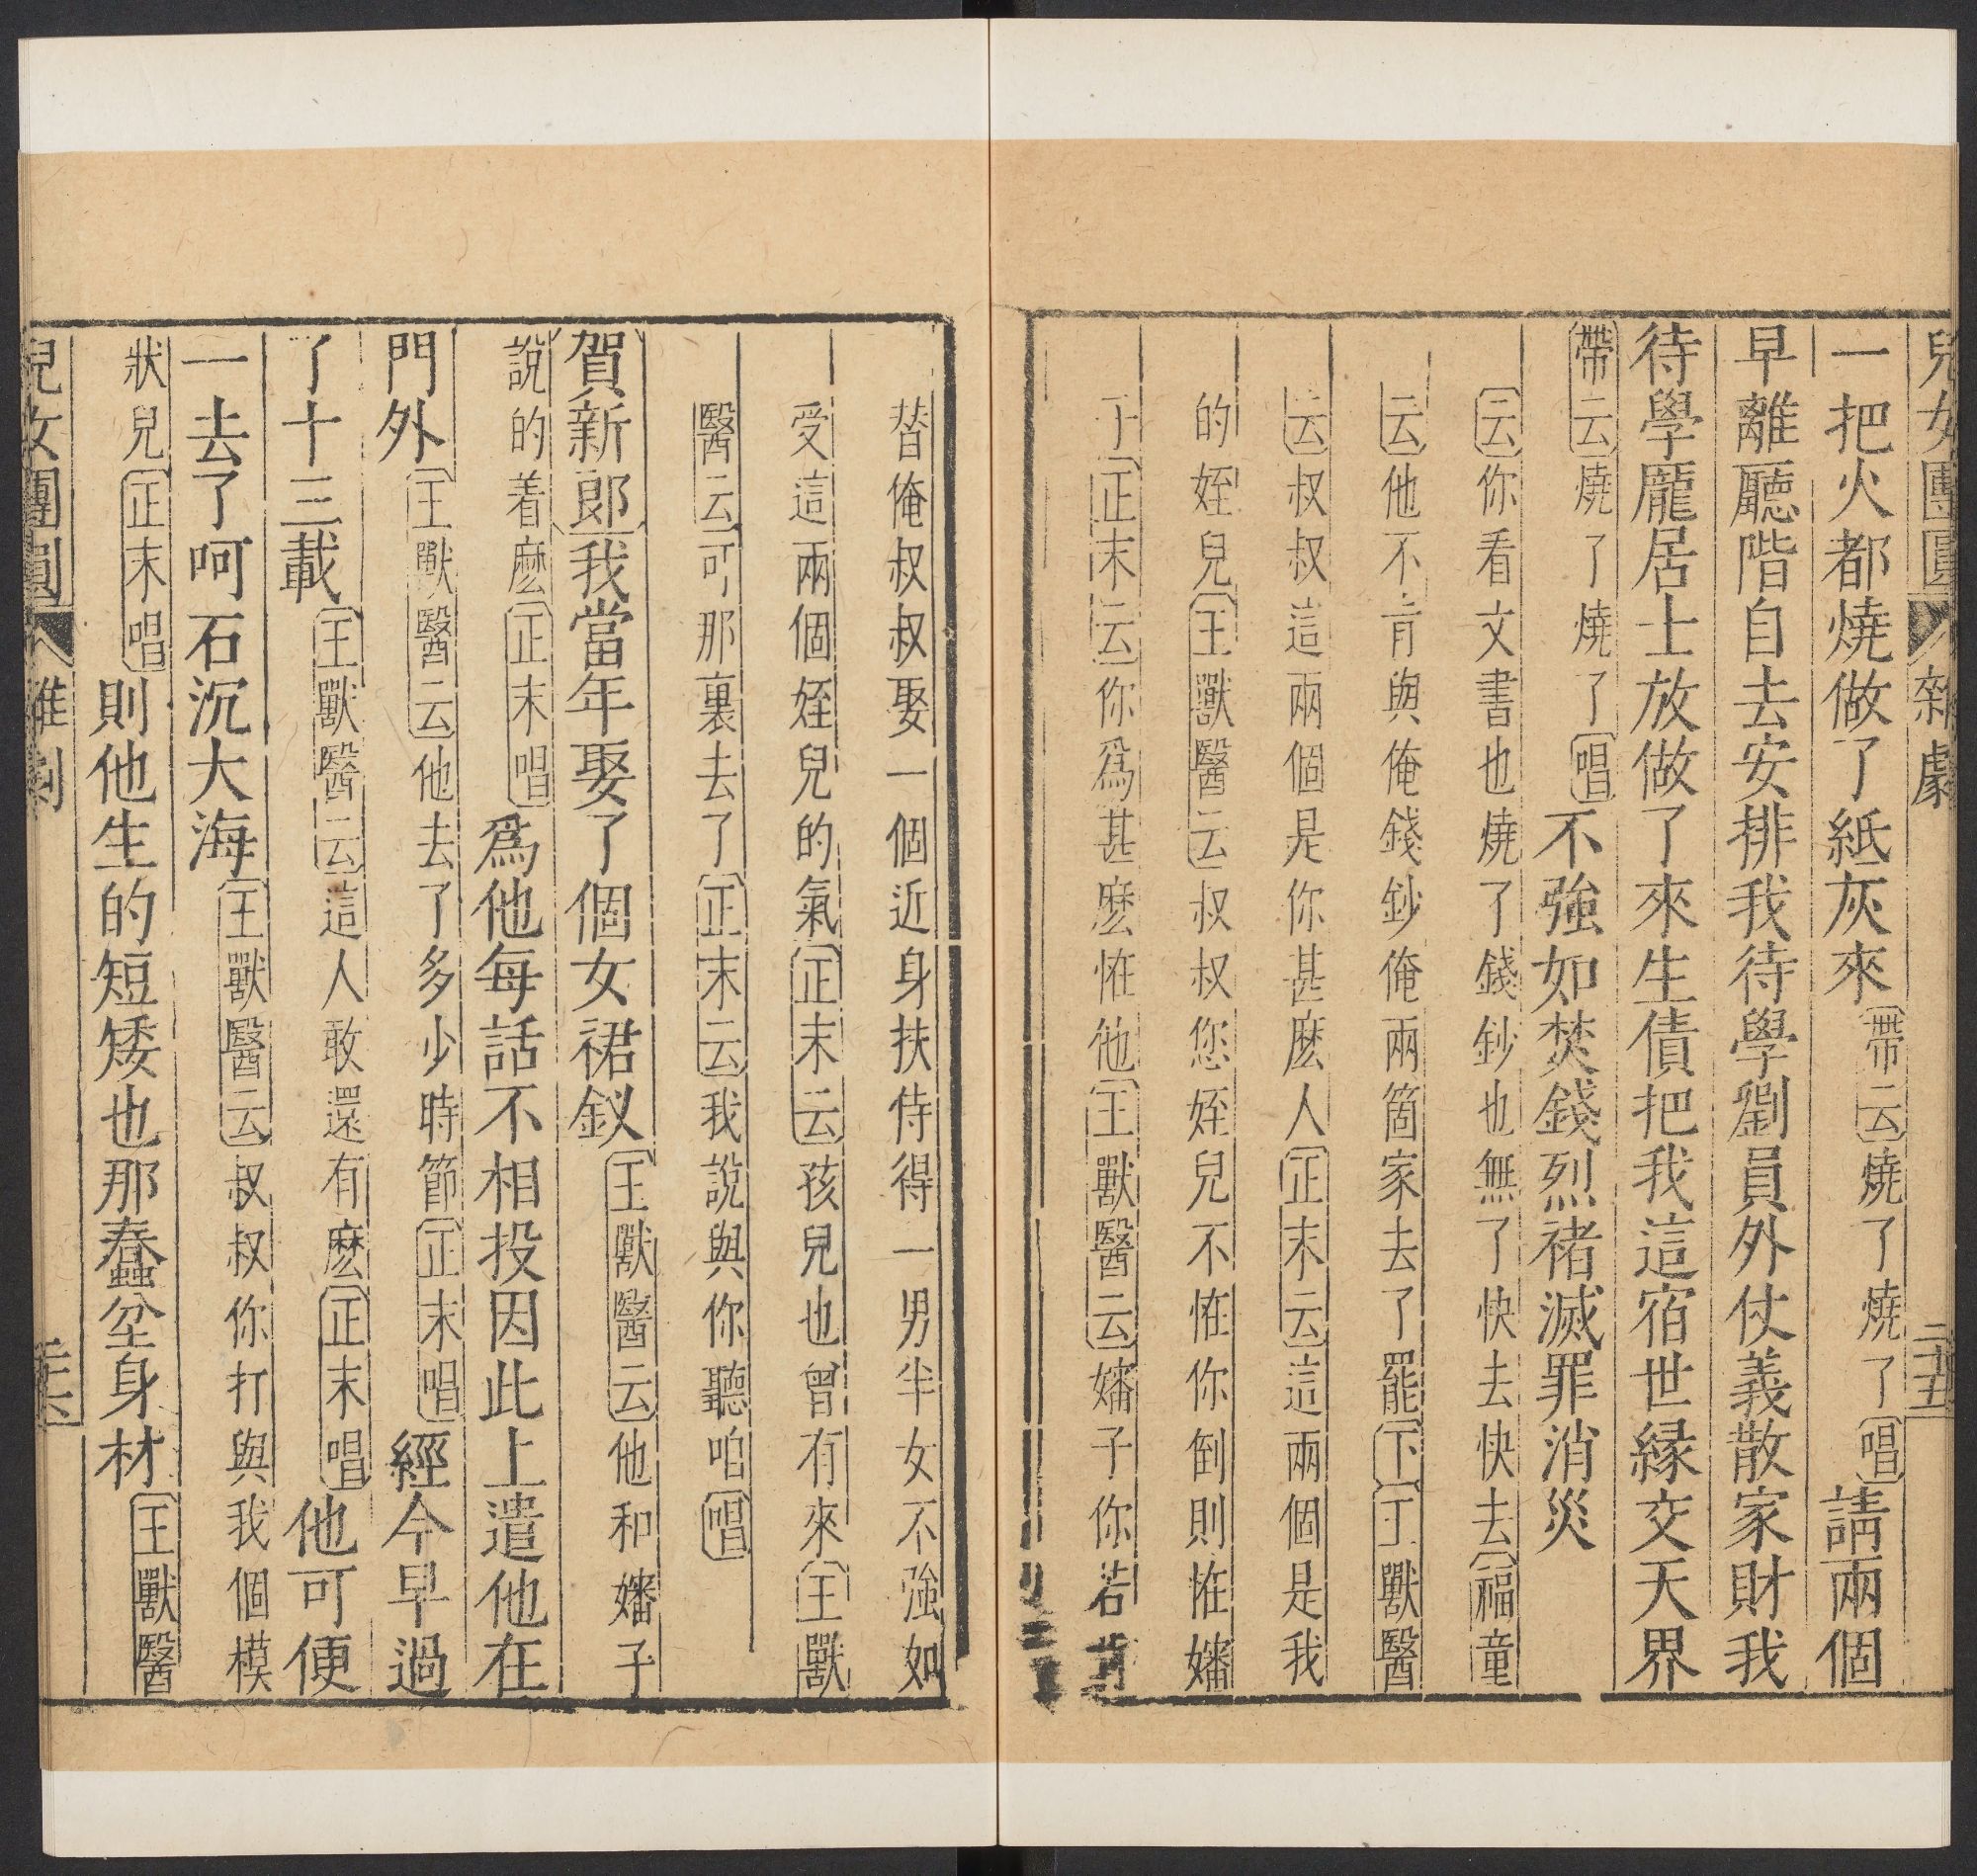 兒女團圓 雜劇 二十五
一把火都燒做了紙灰來帶云燒了燒了唱請兩個
早離廳階自去安排我待學劉員外仗義散家財我
待學龐居士放做了來生債把我這宿世緣交天界
帶云燒了燒了唱不強如焚錢烈褚滅罪消災
云你看文書也燒了錢鈔也無了快去快去福童
云他不肯與俺錢鈔俺兩箇家去了罷下王獸醫
云叔叔這兩個是你甚麽人正末云這兩個是我
的姪兒王獸醫云叔叔您姪兒不恠你倒則恠嬸
子正末云你爲甚麽恠他王獸醫云嬸子你若肯
替俺叔叔娶一個近身扶侍得一男半女不強如
受這兩個姪兒的氣正末云孩兒也曾有來王獸
醫云可那裏去了正末云我說與你聽咱唱
賀新郎我當年娶了個女裙釵王獸醫云他和嬸子
說的着麽正末唱爲他每話不相投因此上遣他在
門外王獸醫云他去了多少時節正末唱經今早過
了十三載王獸醫云這人敢還有麽正末唱他可便
一去了呵石沉大海王獸醫云叔叔你打與我個模
狀兒正末唱則他生的短矮也那蠢坌身材王獸醫
兒女團圓 雜劇 二十六